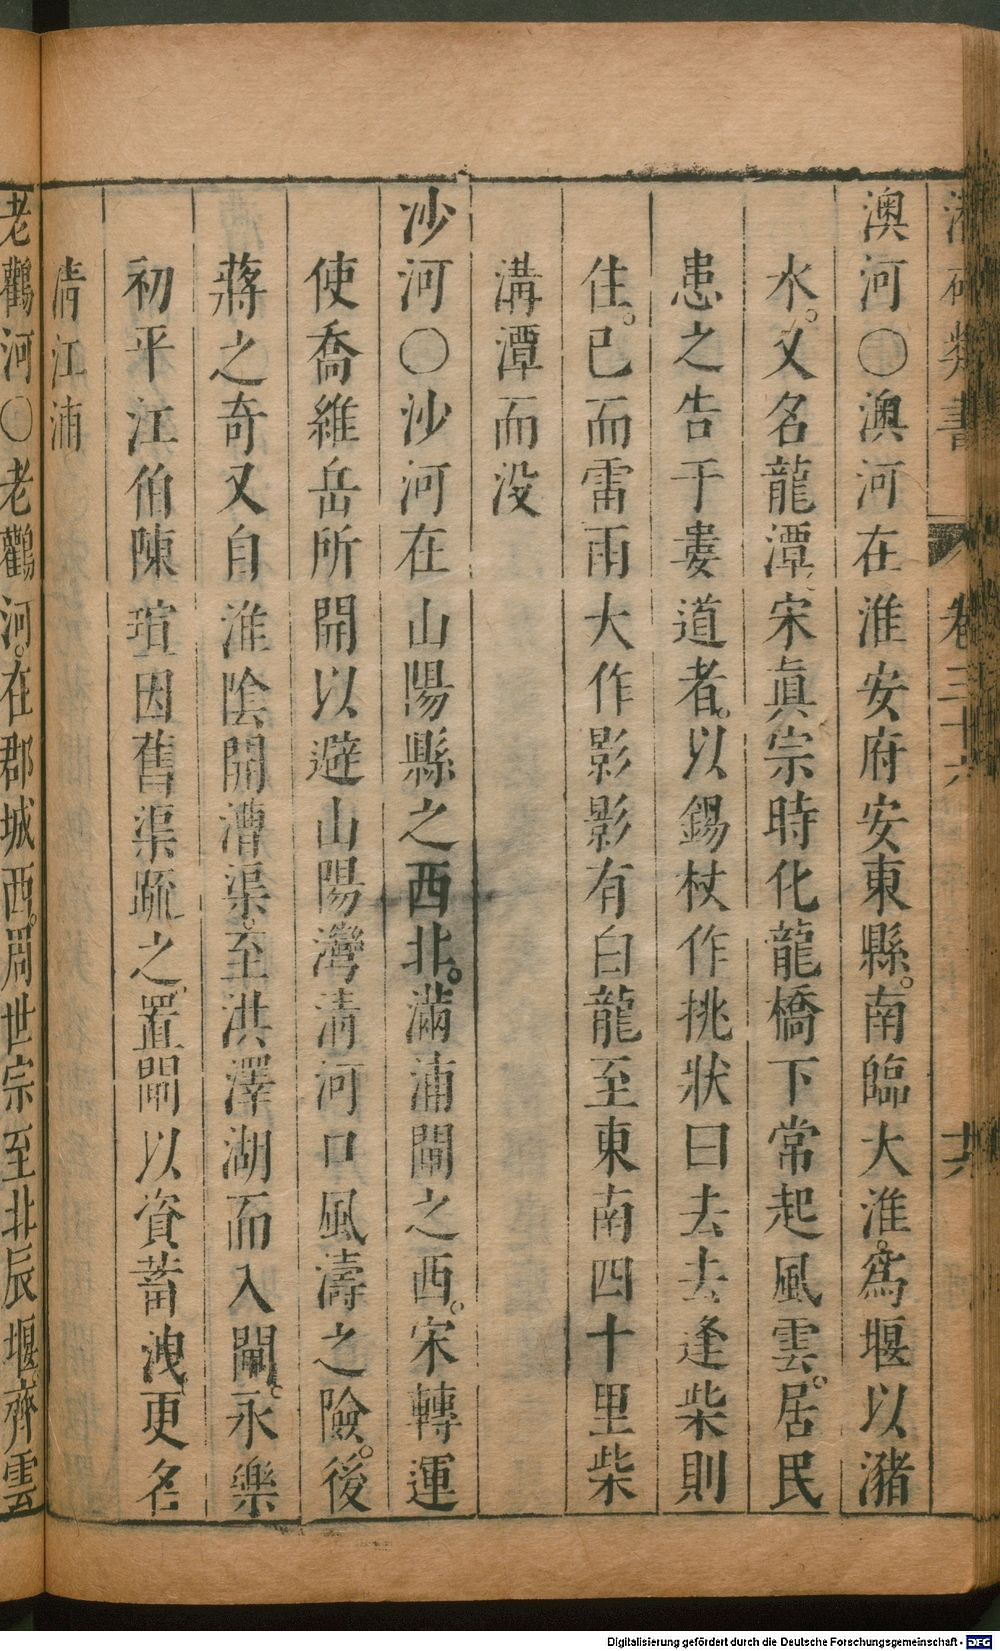 澳河○澳河在淮安府安東縣。南臨大淮。為堰以瀦
水。又名龍潭、宋眞宗時化龍橋下常起風雲。居民
患之告于婁道者。以錫杖作挑狀曰去去逢柴則
住。已而雷雨大作影影有白龍至東南四十里柴
溝潭而没
沙河○沙河在山陽縣之西北。滿浦閘之西。宋轉運
使喬維岳所開以避山陽灣清河口風濤之險。後
蔣之奇又自淮陰開漕渠。至洪澤湖而入閘。永樂
初平江伯陳瑄因舊渠疏之、置閘以資蓄洩、更名
清江浦
老鸛河○老鸛河。在郡城西。周世宗至北辰堰。齊雲
類書
卷三十六
十六
Digitalisierung gefördert durch die Deutsche Forschungsgemeinschaft - DFG